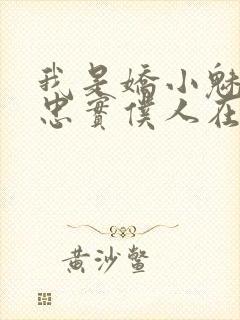 我是嬌小魅
忠實僕人在
黃沙鱉